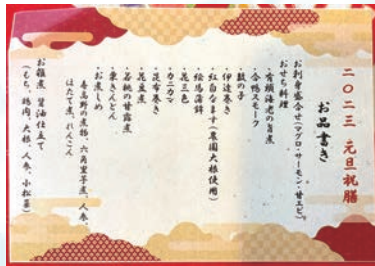 二〇二三 元旦祝膳
お品書き
お刺身盛合せ(マグロ・サーモン・甘エビ)
おせち料理
・有頭海老の旨煮
・合鴨スモーク
・数の子
・伊達巻き
・紅白なます(農園大根使用)
・絵馬蒲鉾
・花三色
・カニカマ
・昆布巻き
・花豆煮
・若桃の甘露煮
・栗きんとん
・お煮しめ
ほたて煮、れんこん
お雑煮 醤油仕立て
(もち、鶏肉、大根、人参、小松菜)